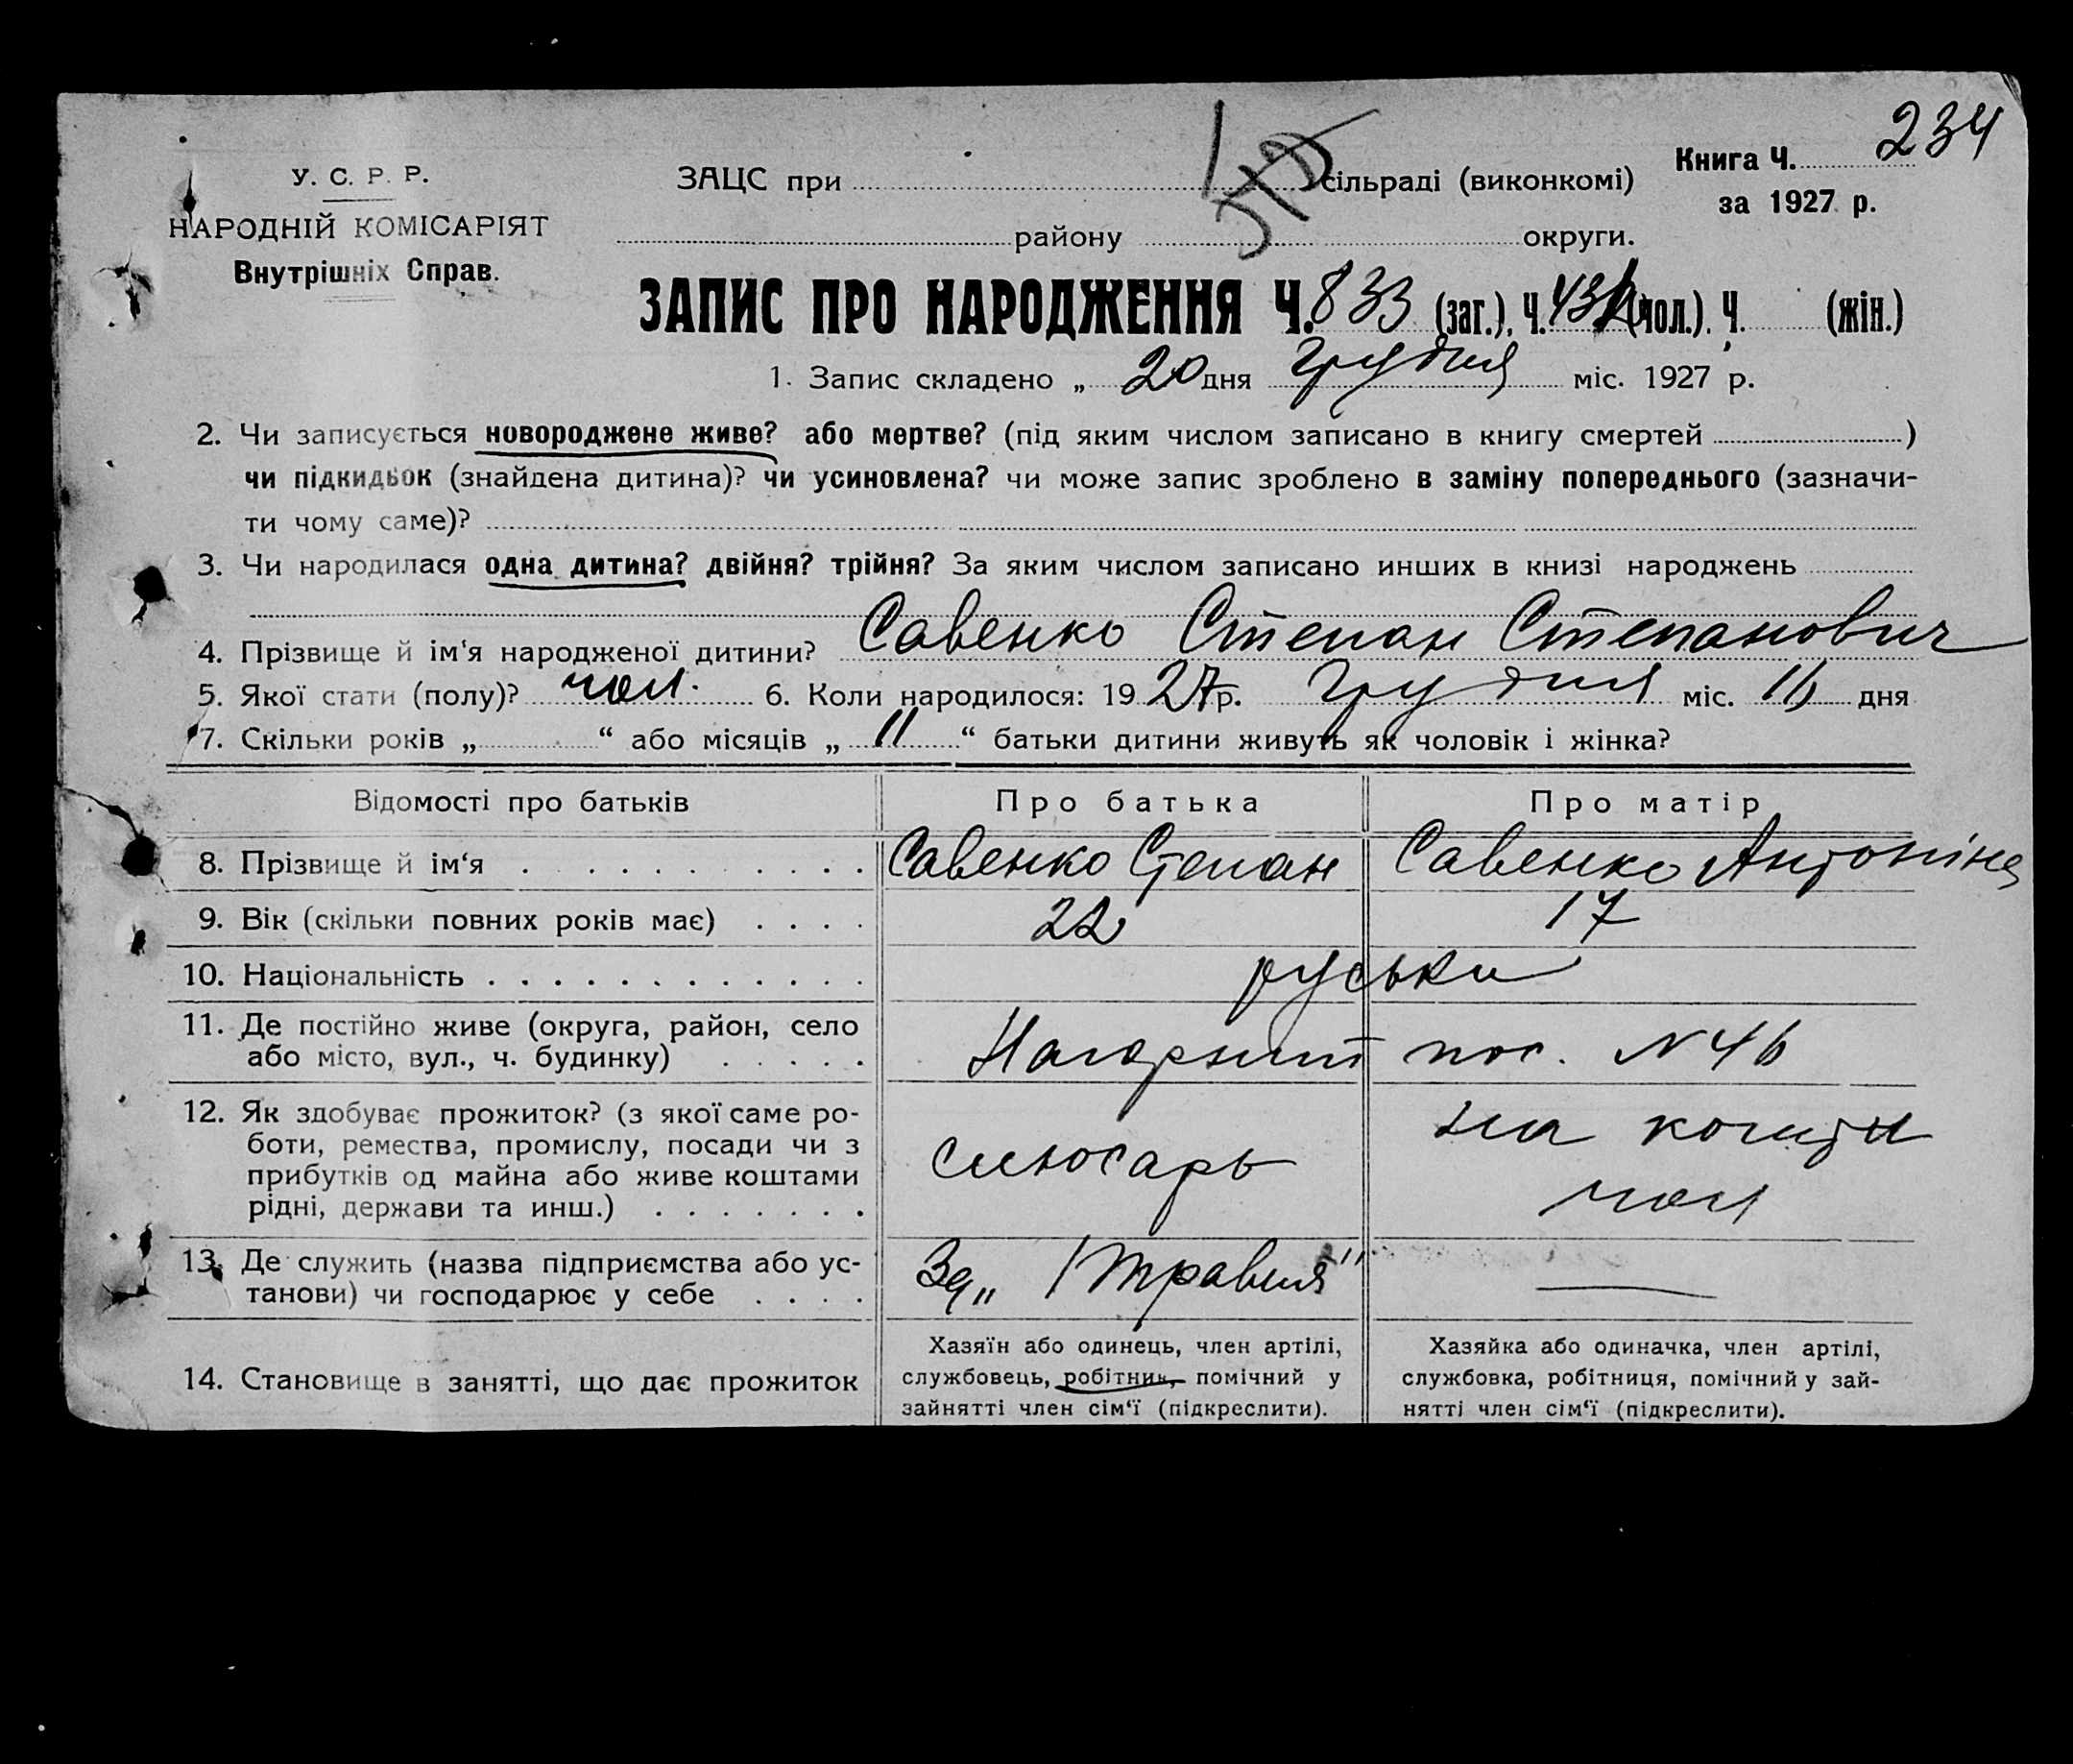 234
У. С. Р. Р.
ЗАЦС при сільраді (виконкомі)
Книга Ч.
за 1927 р.
НАРОДНІЙ КОМІСАРІЯТ
району округи.
Внутрішніх Справ.
ЗАПИС ПРО НАРОДЖЕННЯ Ч. 833 (заг.), Ч. (чол.). Ч. (жін.)
1. Запис складено „ 20 дня грудня міс. 1927 р.
2. Чи записується новороджене живе? або мертве? (під яким числом записано в книгу смертей )
чи підкидьок (знайдена дитина)? чи усиновлена? чи може запис зроблено в заміну попереднього (зазначи-
ти чому саме)?
3. Чи народилася одна дитина? двійня? трійня? За яким числом записано инших в книзі народжень
4. Прізвище й ім‘я народженої дитини? Савенко Степан Степанович
5. Якої стати (полу)? чол. 6. Коли народилося: 19 27 р. грудня міс. дня
7. Скільки років „ “ або місяців „ 11 “ батьки дитини живуть як чоловік і жінка?
Відомості про батьків Про батька Про матір
8. Прізвище й ім‘я Савенко Степан Савенко Антоніна
9. Вік (скільки повних років має) 22 17
10. Національність руськи
11. Де постійно живе (округа, район, село
або місто, вул., ч. будинку) Нагорний пос. N
12. Як здобуває прожиток? (з якої саме ро-
боти, ремества, промислу, посади чи з
прибутків од майна або живе коштами
рідні, держави та инш.)
слюсарь
на кошти
чол
13. Де служить (назва підприємства або ус-
танови) чи господарює у себе
Зд „ 1 травня"
14. Становище в занятті, що дає прожиток
Хазяїн або одинець, член артілі,
службовець, робітник, помічний у
зайнятті член сім‘ї (підкреслити).
Хазяйка або одиначка, член артілі,
службовка, робітниця, помічний у зай-
нятті член сім‘ї (підкреслити).